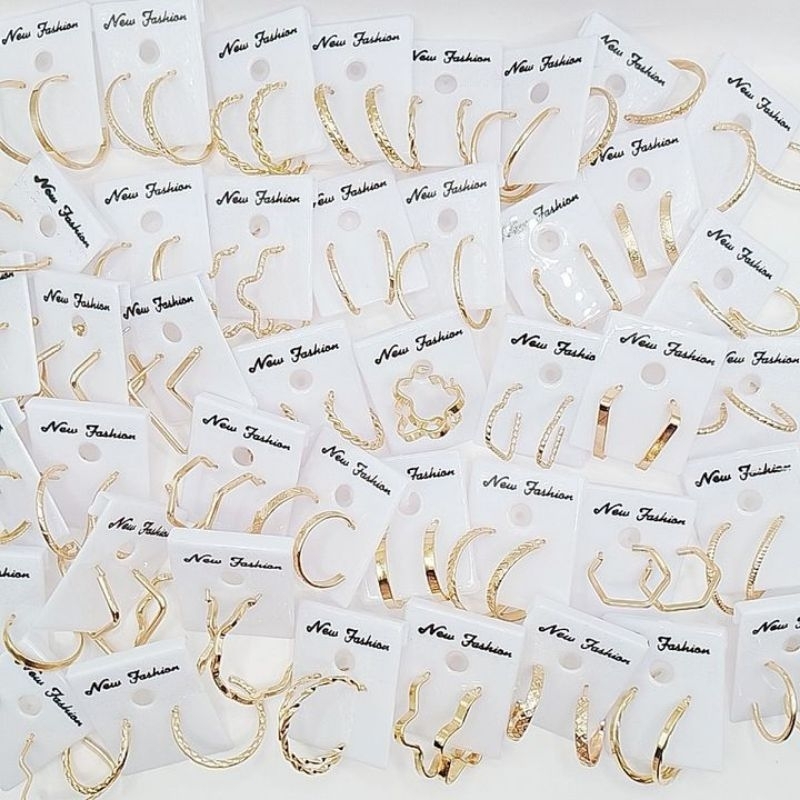 New Fashion
New Fashion
New Fashion
New Fashion
New Fashion
New Fashion
New Fashion
New Fashion
New Fashion
New Fashion
New Fashion
New Fashion
New Fashion
New Fashion
New Fashion
New Fashion
New Fashion
New Fashion
New Fashion
New Fashion
New Fashion
New Fashion
New Fashion
New Fashion
New Fashion
New Fashion
New Fashion
New Fashion
New Fashion
New Fashion
New Fashion
New Fashion
Fashion
New Fashion
New Fashion
New Fashion
New Fashion
New Fashion
New Fashion
New Fashion